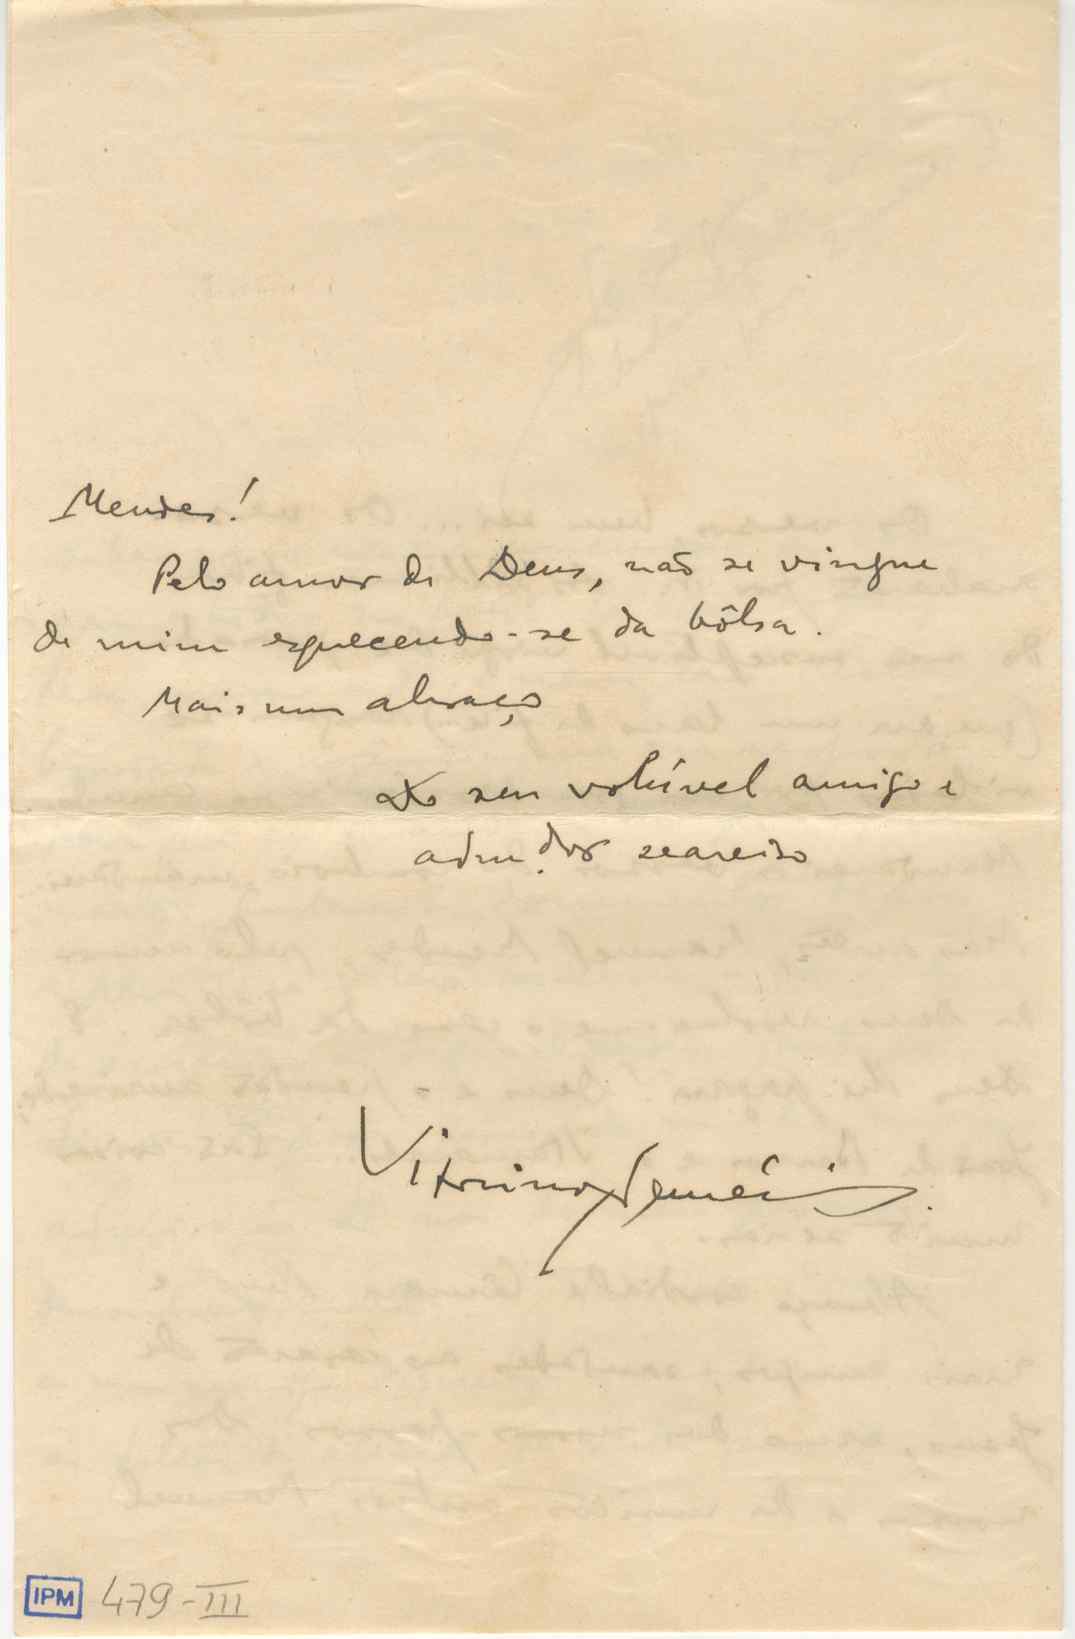 Mendes!
Pelo amor de Deus, não se vingue
de mim esquecendo-se da bôlsa.
Mais um abraço
Do seu volúvel amigo e
adm.dor seareiro
Vitorino Nemésio.
IPM 479-III